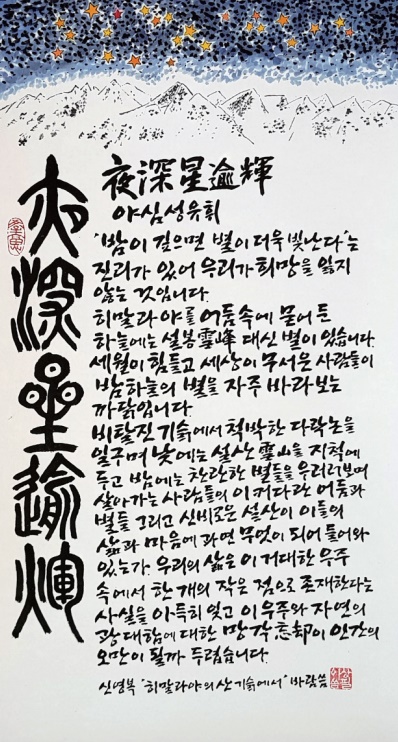 夜深星逾輝
夜深星逾輝
야심성유휘
'밤이 깊으면 별이 더욱 빛난다'는
진리가 있어 우리가 희망을 잃지
않는 것입니다.
희말라야를 어둠속에 묻어 둔
하늘에는 설봉雪峰 대신 별이 있습니다.
세월이 힘들고 세상이 무서운 사람들이
밤하늘의 별을 자주 바라보는
까닭입니다.
비탈진 기슭에서 척박한 다락논을
일구며 낮에는 설산雪山을 지척에
두고 밤에는 찬란한 별들을 우러러보며
살아가는 사람들의 이 거다란 어둠과
별들 그리고 신비로운 설산이 이들의
삶과 마음에 과연 무엇이 되어 들어와
있는가. 우리의 삶은 이 거대한 우주
속에서 한 개의 작은 점으로 존재한다는
사실을 아득히 잊고 이 우주와 자연의
광대함에 대한 망각忘却이 인간의
오만이 될까 두렵습니다.
신영복 "희말라야의 산기슭에서" 바람씀